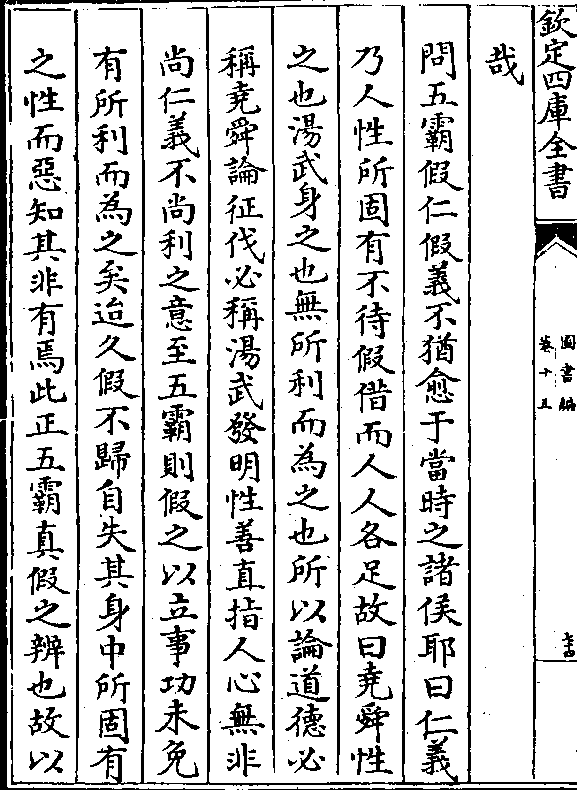 欽定四庫全書
圖書編
卷十五
哉
問五霸假仁假義不猶愈于當時之諸侯耶曰仁義
乃人性所固有不待假借而人人各足故曰堯舜性
之也湯武身之也無所利而為之也所以論道德必
稱堯舜論征伐必稱湯武發明性善直指人心無非
尚仁義不尚利之意至五霸則假之以立事功未免
有所利而為之矣迨久假不歸自失其身中所固有
之性而惡知其非有焉此正五霸真假之辨也故以